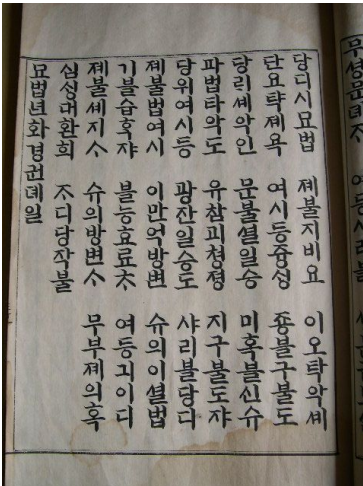 당디시묘법 졔불지비요 이오탁악셰
단요탹졔욕 여시등즁ᄉᆡᆼ 죵불구불도
당ᄅᆡ셰악인 문불셜일승 미혹불신슈
파법타악도 유참괴쳥졍 지구불도쟈
당위여시등 광찬일승도 샤리불당디
졔불법여시 이만억방변 슈의이셜법
기불습호쟈 불능효료ᄎᆞ 여등긔이디
졔불셰지ᄉᆞ 슈의방변ᄉᆞ 무부졔의혹
심ᄉᆡᆼ대환희 ᄌᆞ디당작불
묘법년화경권뎨일